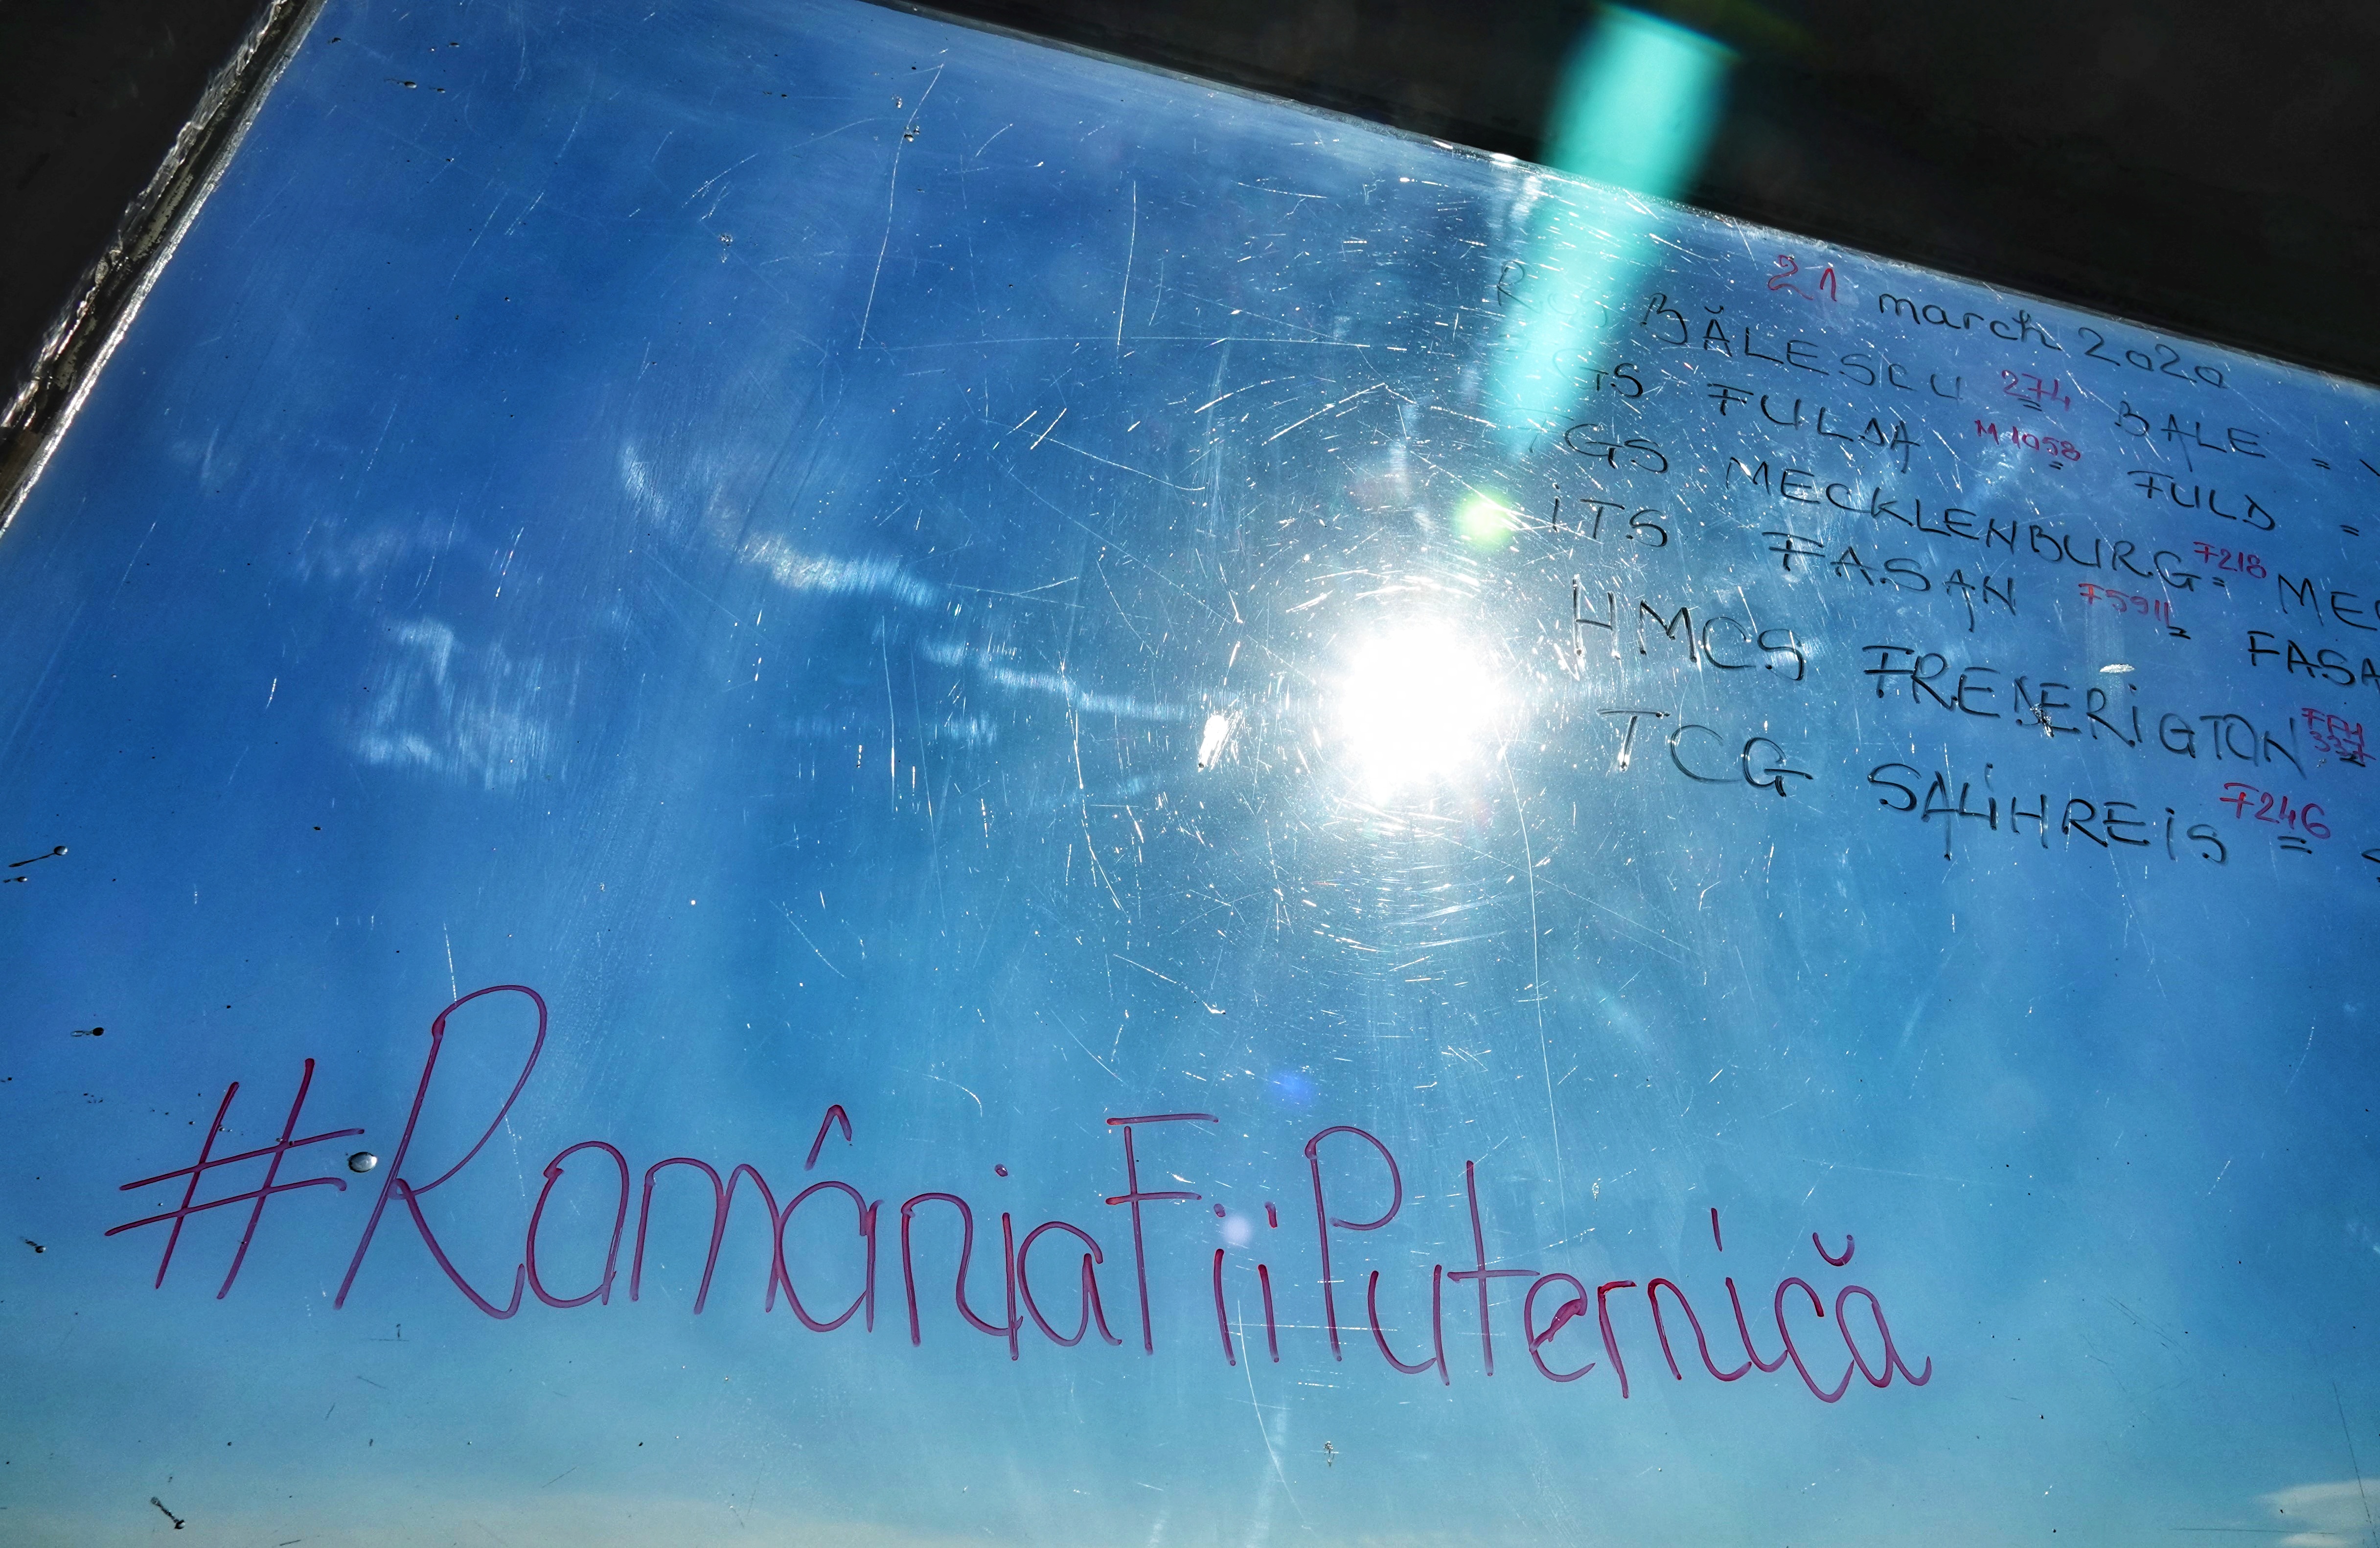 21 march 2020
BĂLESCU 274 BALE =
GS FULDA M1058 = FULD =
TGS MECKLENBURG F218 = MEC
ITS FASAN F591 = FASA
HMCS FREDERIGTON FFH 337 =
TCG SALIHREIS F246 = S
#RomâniaFiiPuternică